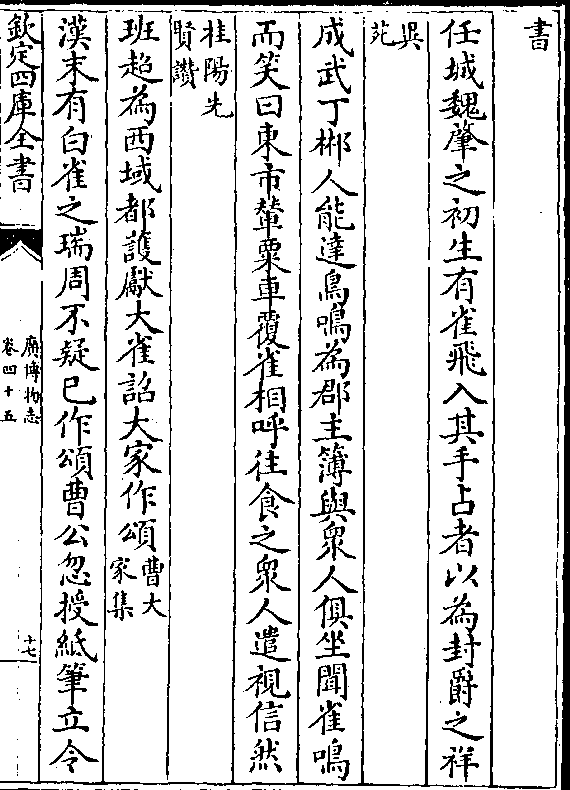 書
任城魏肇之初生有雀飛入其手占者以為封爵之祥
異苑
成武丁郴人能達鳥鳴為郡主簿與衆人俱坐聞雀鳴
而笑曰東市輦粟車覆雀相呼往食之衆人遣視信然
桂陽先賢讚
班超為西域都護獻大雀詔大家作頌曹大家集
漢末有白雀之瑞周不疑已作頌曹公忽授紙筆立令
欽定四庫全書
廣博物志
卷四十五
十七